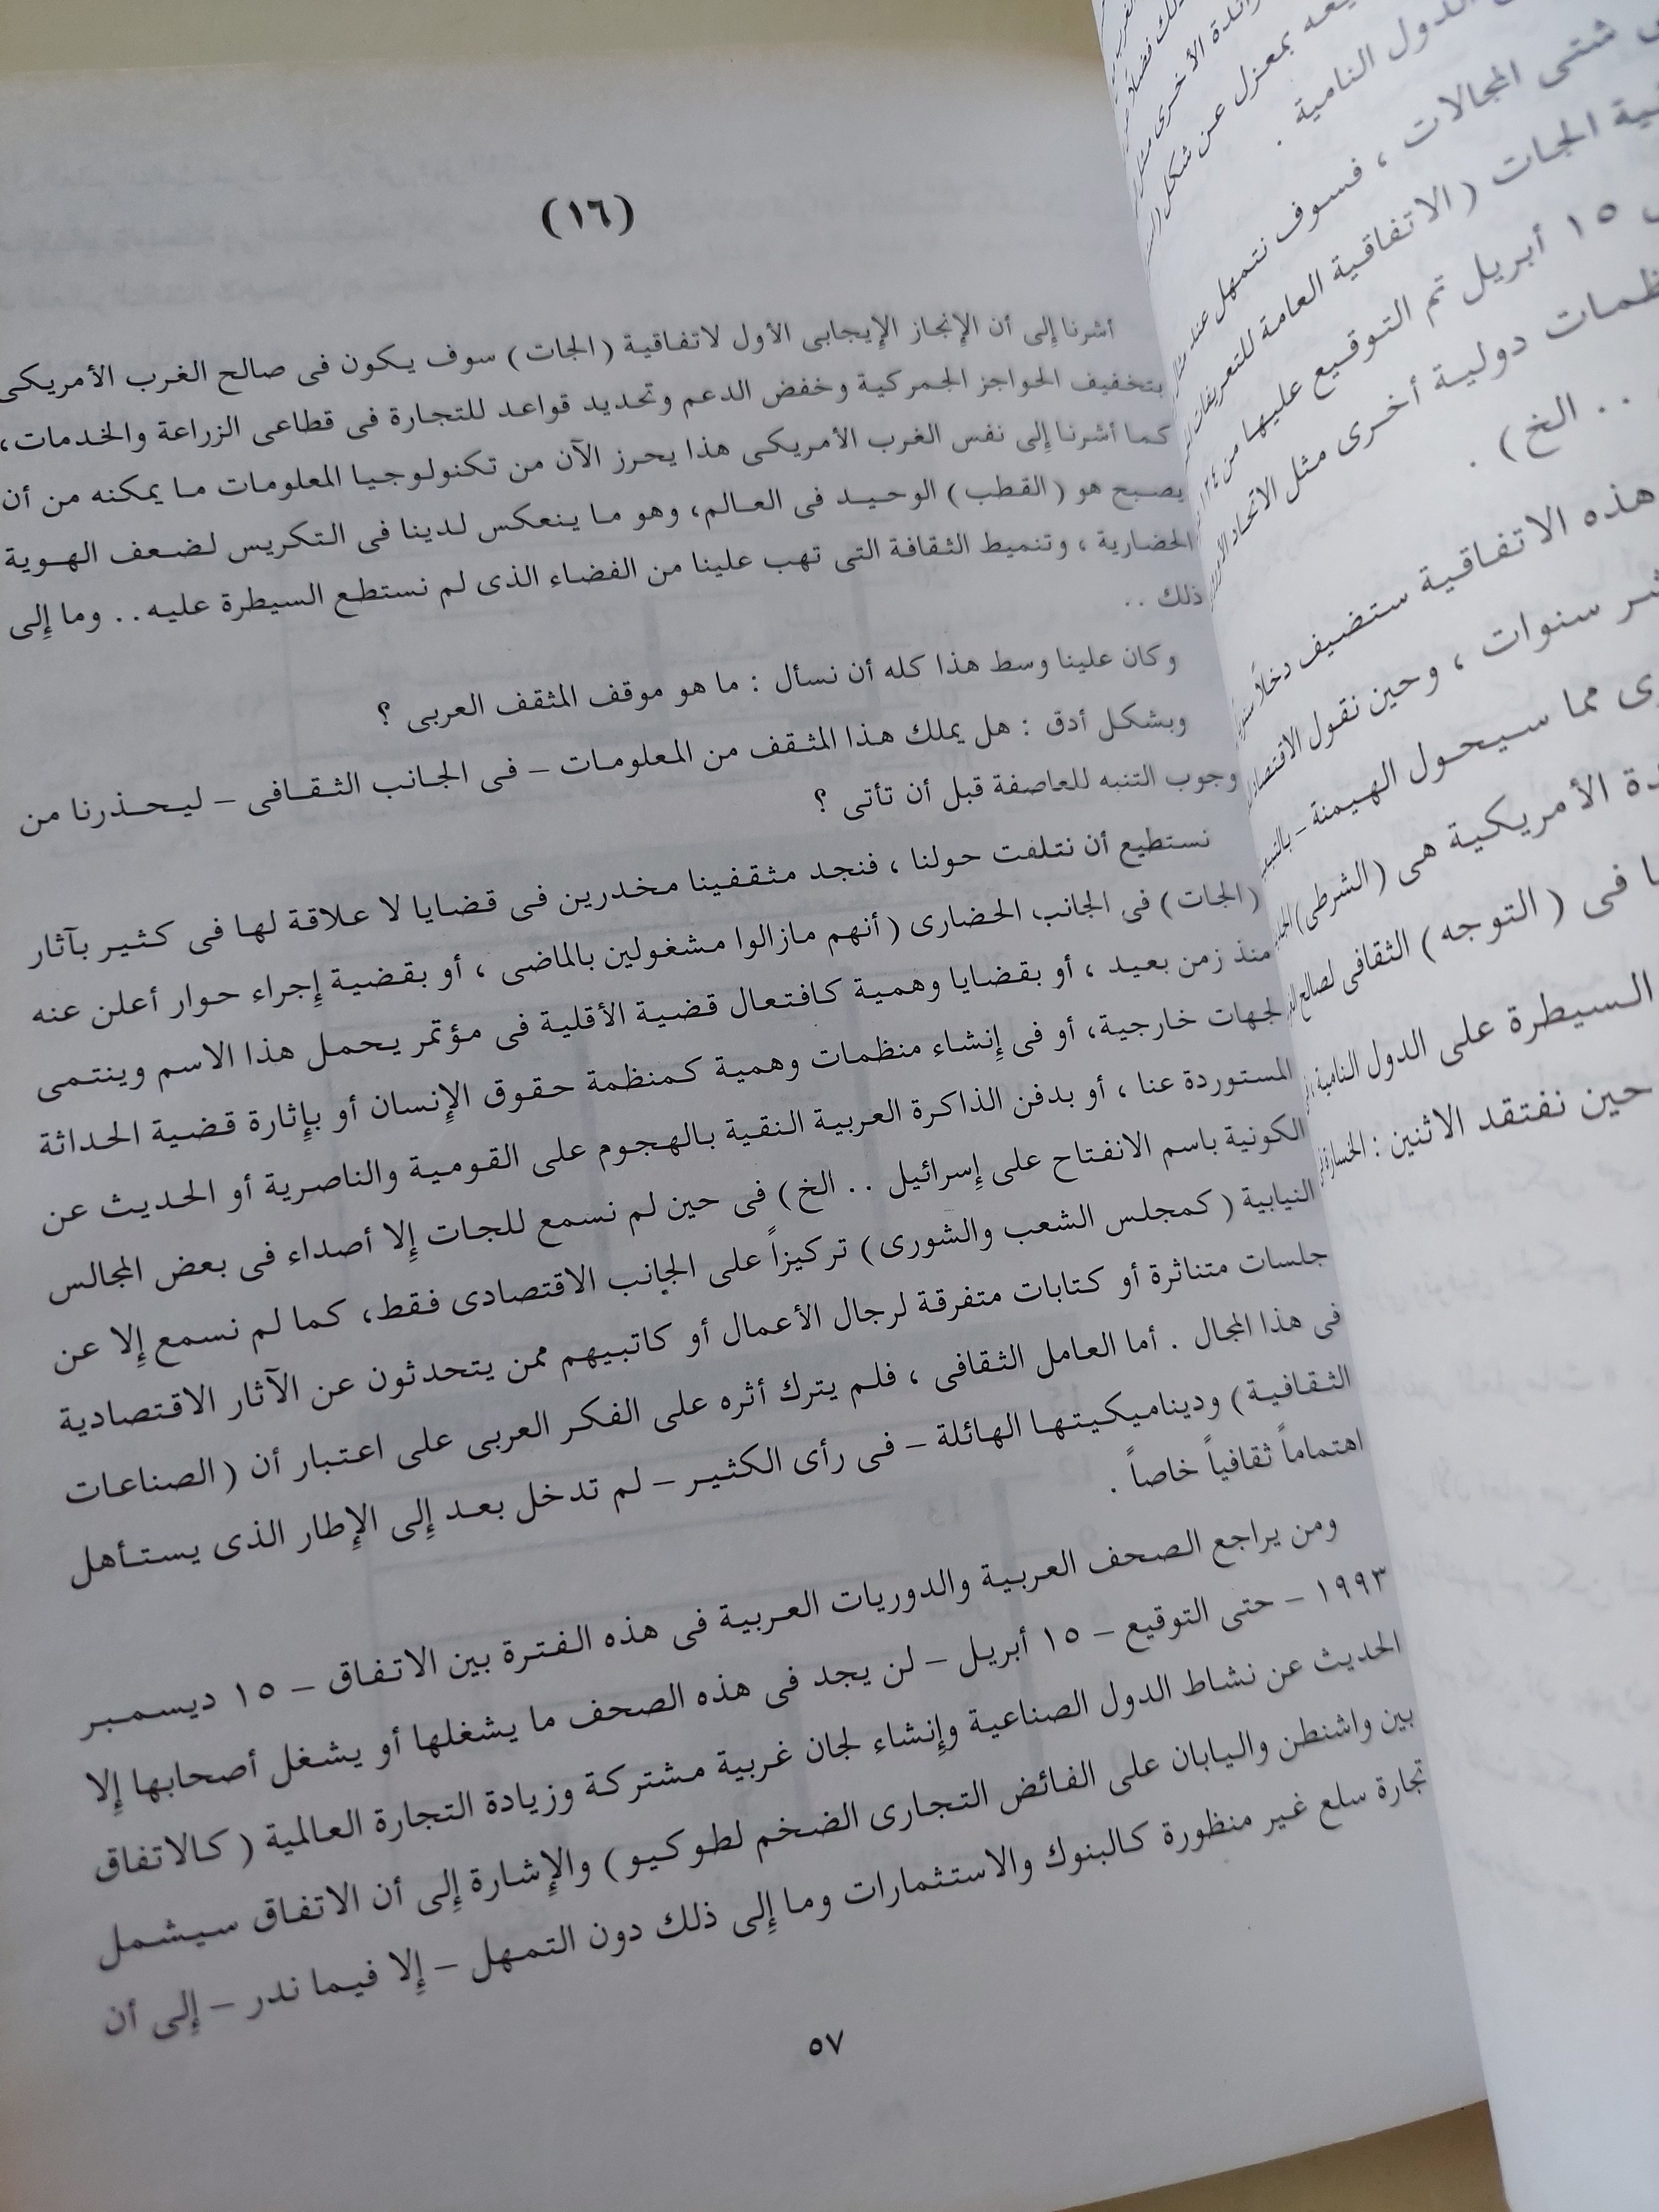 شتى المجالات ، فسوف نتمهل عند
ية الجات (الاتفاقية العامة للتعريفات
١٥ أبريل تم التوقيع عليها من ١٢٤
ظمات دولية أخرى مثل الاتحاد
. . الخ) .
هذه الاتفاقية ستضيف دخلاً
شر سنوات ، وحين نقول
ى مما سيحول الهيمنة –
دة الأمريكية هى (الشرطى)
ا فى ( التوجه ) الثقافى لصالح
السيطرة على الدول النامية
حين نفتقد الاثنين : الخسارة
(١٦)
أشرنا إلى أن الإنجاز الإيجابى الأول لاتفاقية (الجات) سوف يكون فى صالح الغرب الأمريكى
بتخفيف الحواجز الجمركية وخفض الدعم وتحديد قواعد للتجارة فى قطاعى الزراعة والخدمات،
كما أشرنا إلى نفس الغرب الأمريكى هذا يحرز الآن من تكنولوجيا المعلومات ما يمكنه من أن
يصبح هو (القطب) الوحيد فى العالم، وهو ما ينعكس لدينا فى التكريس لضعف الهوية
الحضارية ، وتنميط الثقافة التى تهب علينا من الفضاء الذى لم نستطع السيطرة عليه . . وما إلى
ذلك . .
وكان علينا وسط هذا كله أن نسأل : ما هو موقف المثقف العربى ؟
وبشكل أدق : هل يملك هذا المثقف من المعلومات – فى الجانب الثقافى – ليحذرنا من
وجوب التنبه للعاصفة قبل أن تأتى ؟
نستطيع أن نتلفت حولنا ، فنجد مثقفينا مخدرين فى قضايا لا علاقة لها فى كثير بآثار
(الجات) فى الجانب الحضارى (أنهم مازالوا مشغولين بالماضى ، أو بقضية إجراء حوار أعلن عنه
منذ زمن بعيد ، أو بقضايا وهمية كافتعال قضية الأقلية فى مؤتمر يحمل هذا الاسم وينتمى
لجهات خارجية، أو فى إنشاء منظمات وهمية كمنظمة حقوق الإنسان أو بإثارة قضية الحداثة
المستوردة عنا ، أو بدفن الذاكرة العربية النقية بالهجوم على القومية والناصرية أو الحديث عن
الكونية باسم الانفتاح على إسرائيل . . الخ) فى حين لم نسمع للجات إلا أصداء فى بعض المجالس
النيابية ( كمجلس الشعب والشورى) تركيزاً على الجانب الاقتصادى فقط، كما لم نسمع إلا عن
جلسات متناثرة أو كتابات متفرقة لرجال الأعمال أو كاتبيهم ممن يتحدثون عن الآثار الاقتصادية
فى هذا المجال . أما العامل الثقافى ، فلم يترك أثره على الفكر العربى على اعتبار أن (الصناعات
الثقافية) وديناميكيتها الهائلة – فى رأى الكثير – لم تدخل بعد إلى الإطار الذى يستأهل
اهتماماً ثقافياً خاصاً .
ومن يراجع الصحف العربية والدوريات العربية فى هذه الفترة بين الاتفاق – ١٥ ديسمبر
١٩٩٣ – حتى التوقيع – ١٥ أبريل – لن يجد فى هذه الصحف ما يشغلها أو يشغل أصحابها إلا
الحديث عن نشاط الدول الصناعية وإنشاء لجان غربية مشتركة وزيادة التجارة العالمية (كالاتفاق
بين واشنطن واليابان على الفائض التجارى الضخم لطوكيو) والإشارة إلى أن الاتفاق سيشمل
تجارة سلع غير منظورة كالبنوك والاستثمارات وما إلى ذلك دون التمهل – إلا فيما ندر – إلى أن
٥٧